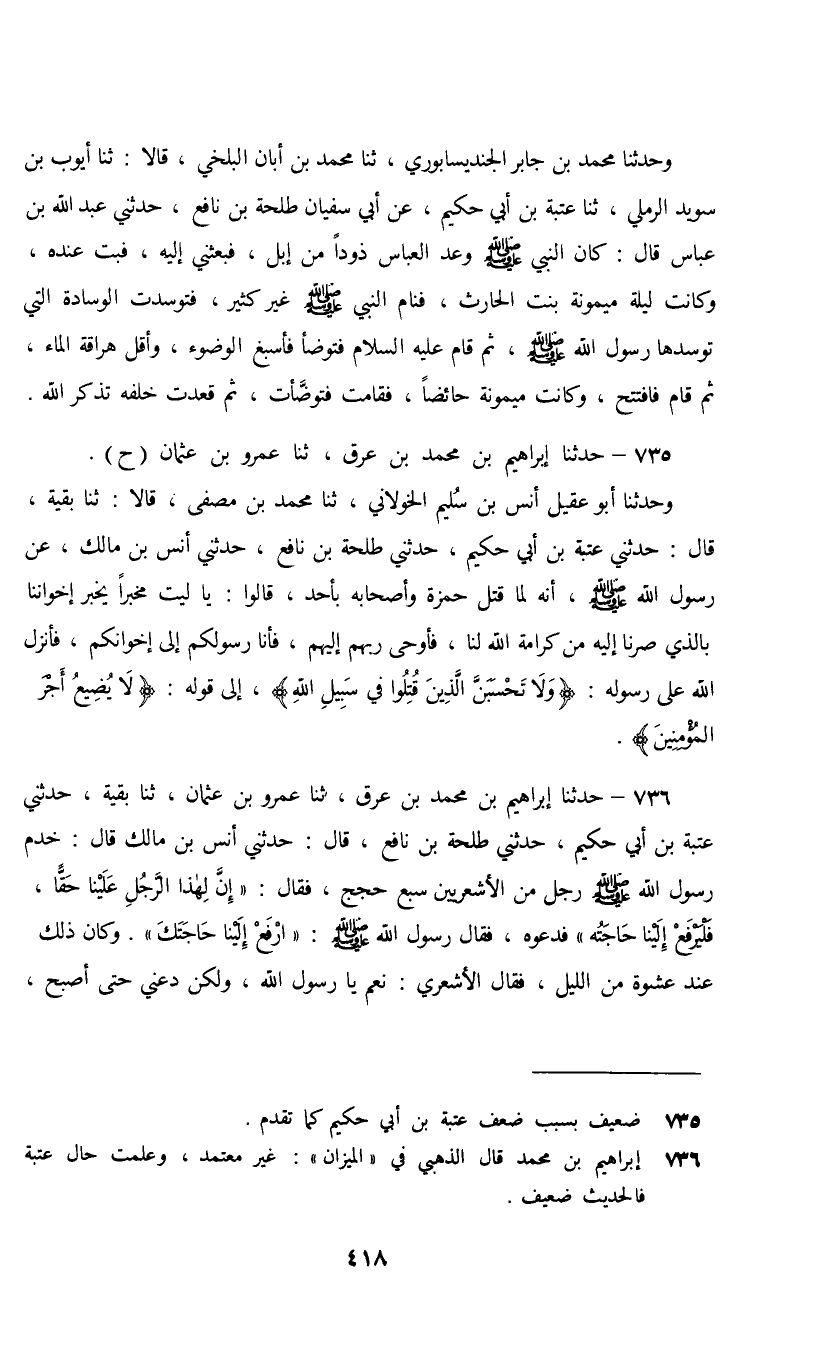 وحدثنا محمد بن جابر الجنديسابوري ، ثنا محمد بن أبان البلخي ، قالا : ثنا أيوب بن
سويد الرملي ، ثنا عتبة بن أبي حكيم ، عن أبي سفيان طلحة بن نافع ، حدثني عبد الله بن
عباس قال : كان النبي ﷺ وعد العباس ذوداً من إبل ، فبعثني إليه ، فبت عنده ،
وكانت ليلة ميمونة بنت الحارث ، فنام النبي ﷺ غير كثير ، فتوسدت الوسادة التي
توسدها رسول الله ﷺ ، ثم قام عليه السلام فتوضأ فأسبغ الوضوء ، وأقل هراقة الماء ،
ثم قام فافتتح ، وكانت ميمونة حائضاً ، فقامت فتوضَّأت ، ثم قعدت خلفه تذكر الله .
٧٣٥ – حدثنا إبراهيم بن محمد بن عرق ، ثنا عمرو بن عثمان (ح) .
وحدثنا أبو عقيل أنس بن سُليم الخولاني ، ثنا محمد بن مصفى ، قالا : ثنا بقية ،
قال : حدثني عتبة بن أبي حكيم ، حدثني طلحة بن نافع ، حدثني أنس بن مالك ، عن
رسول الله ﷺ ، أنه لما قتل حمزة وأصحابه بأحد ، قالوا : يا ليت مخبراً يخبر إخواننا
بالذي صرنا إليه من كرامة الله لنا ، فأوحى ربهم إليهم ، فأنا رسولكم إلى إخوانكم ، فأنزل
الله على رسوله : ﴿وَلَا تَحْسَبَنَّ الَّذِينَ قُتِلُوا في سَبِيلِ اللهِ﴾ ، إلى قوله : ﴿لَا يُضِيعُ أَجْرَ
المُؤْمِنِينَ﴾ .
٧٣٦ – حدثنا إبراهيم بن محمد بن عرق ، ثنا عمرو بن عثمان ، ثنا بقية ، حدثني
عتبة بن أبي حكيم ، حدثني طلحة بن نافع ، قال : حدثني أنس بن مالك قال : خدم
رسول الله ﷺ رجل من الأشعريين سبع حجج ، فقال : « إِنَّ لِهٰذا الرَّجُلِ عَلَيْنا حَقًّا ،
فَلْيَرْفَعْ إِلَيْنا حَاجَتُه » فدعوه ، فقال رسول الله ﷺ : « ارْفَعْ إِلَيْنا حَاجَتَكَ » . وكان ذلك
عند عشوة من الليل ، فقال الأشعري : نعم يا رسول الله ، ولكن دعني حتى أصبح ،
٧٣٥ ضعيف بسبب ضعف عتبة بن أبي حكيم كما تقدم .
٧٣٦ إبراهيم بن محمد قال الذهبي في « الميزان » : غير معتمد ، وعلمت حال عتبة
فالحديث ضعيف .
٤١٨